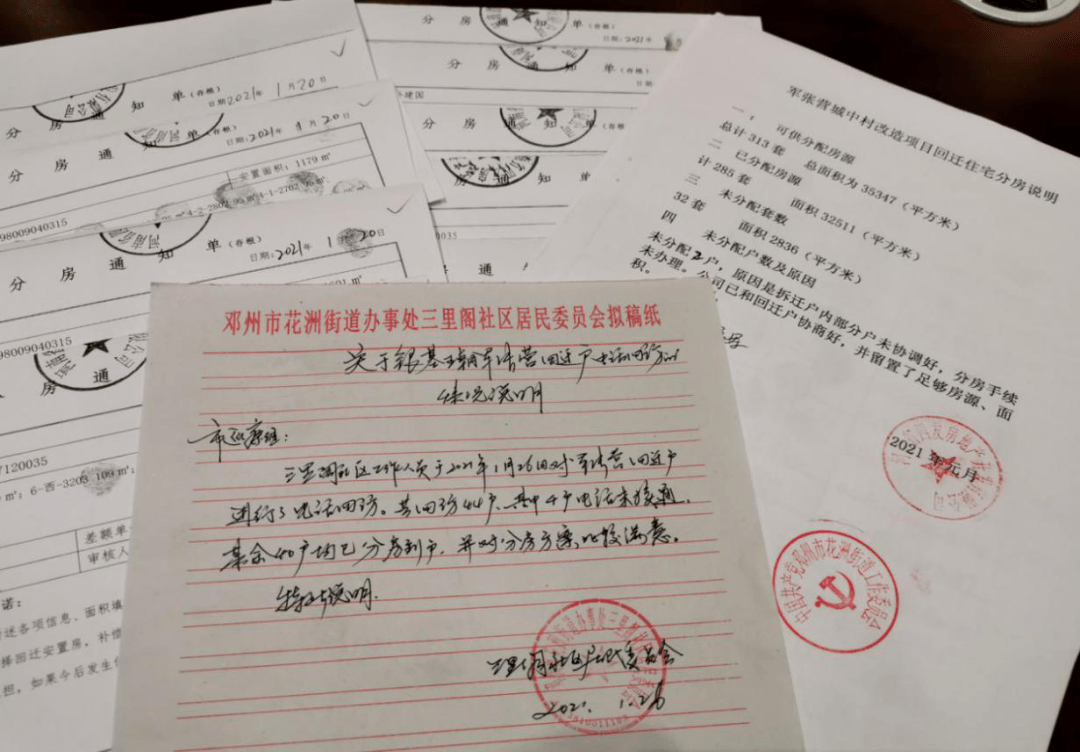 分房通知单(存根)
日期:2021年1月20日
分房通知单(存根)
日期:2021年1月20日
安置面积:1179㎡
98009040315
分房通知单(存根)
2021年1月20日
98009040315
分房通
7120035
㎡;6-西-3203 109㎡;
差额单
审核人
诺:
述各项信息、面积填
择回迁安置房,补偿
担。如果今后发生
分房通知单(存根)
日期:2021年
分房通知单(存根)
分房通知单(存根)
军张营城中村改造项目回迁住宅分房说明
一、可供分配房源
总计313套 总面积为35347(平方米)
二 已分配房源
计285套 面积32511(平方米)
三 未分配套数
32套 面积2836(平方米)
四 未分配户数及原因
未分配2户,原因是拆迁户内部分户未协调好,分房手续
未办理。公司已和回迁户协商好,并留置了足够房源、面
积。
2021年元月
中国共产党邓州市花洲街道工作委员会
邓州市花洲街道办事处三里阁社区居民委员会拟稿纸
关于银基王朝军张营回迁户电话回访的
情况说明
市巡察组:
三里阁社区工作人员于2021年1月26日对军张营回迁户
进行了电话回访。共回访44户,其中4户电话未接通,
其余40户均已分房到户,并对分房方案比较满意。
特此说明.
三里阁社区居民委员会
2021.1.26